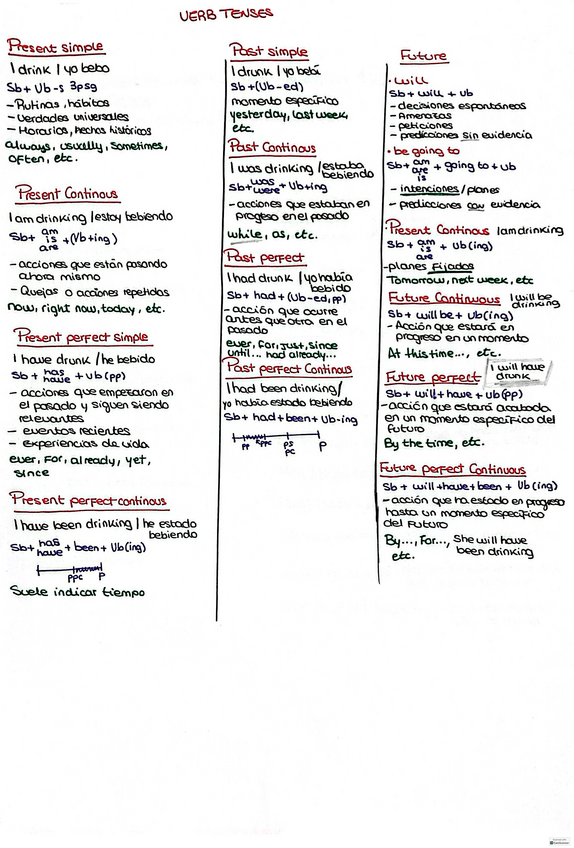 VERB TENSES
Present simple
I drink / yo bebo
Sb + Vb-s 3psg
- Rutinas, hábitos
- Verdades universales
- Horarios, hechos históricos
always, usually, sometimes,
often, etc.
Present Continous
I am drinking / estoy bebiendo
Sb + am is are + (Vb+ing)
- acciones que están pasando
ahora mismo
- Quejas o acciones repetidas
now, right now, today, etc.
Present perfect simple
I have drunk / he bebido
Sb + has have + Vb (pp)
- acciones que empezaron en
el pasado y siguen siendo
relevantes
- eventos recientes
- experiencias de vida
ever, for, already, yet,
since
Present perfect continous
I have been drinking / he estado
bebiendo
Sb + has have + been + Vb (ing)
PPC P
Suele indicar tiempo
Past simple
I drunk / yo bebí
Sb + (Vb-ed)
momento específico
yesterday, last week,
etc.
Past Continous
I was drinking / estaba
bebiendo
Sb + was were + Vb+ing
- acciones que estaban en
progeso en el pasado
while, as, etc.
Past perfect
I had drunk / yo había
bebido
Sb + had + (Vb-ed, pp)
- acción que ocurre
antes que otra en el
pasado
ever, for, just, since
until... had already...
Past perfect Continous
I had been drinking /
yo había estado bebiendo
Sb + had + been + Vb-ing
PP PPC PS PC P
Future
· will
Sb + will + Vb
- decisiones espontáneas
- Amenazas
- peticiones
- predicciones sin evidencia
· be going to
Sb + am are is + going to + Vb
- intenciones / planes
- predicciones con evidencia
· Present Continous I am drinking
Sb + am is are + Vb (ing)
- planes fijados
Tomorrow, next week, etc
Future Continuous I will be
drinking
Sb + will be + Vb (ing)
- Acción que estará en
progreso en un momento
At this time..., etc.
Future perfect I will have
drunk
Sb + will + have + Vb (pp)
- acción que estará acabada
en un momento específico del
futuro
By the time, etc.
Future perfect Continuous
Sb + will + have + been + Vb (ing)
- acción que ha estado en progreso
hasta un momento específico
del futuro
By..., For..., She will have
etc. been drinking